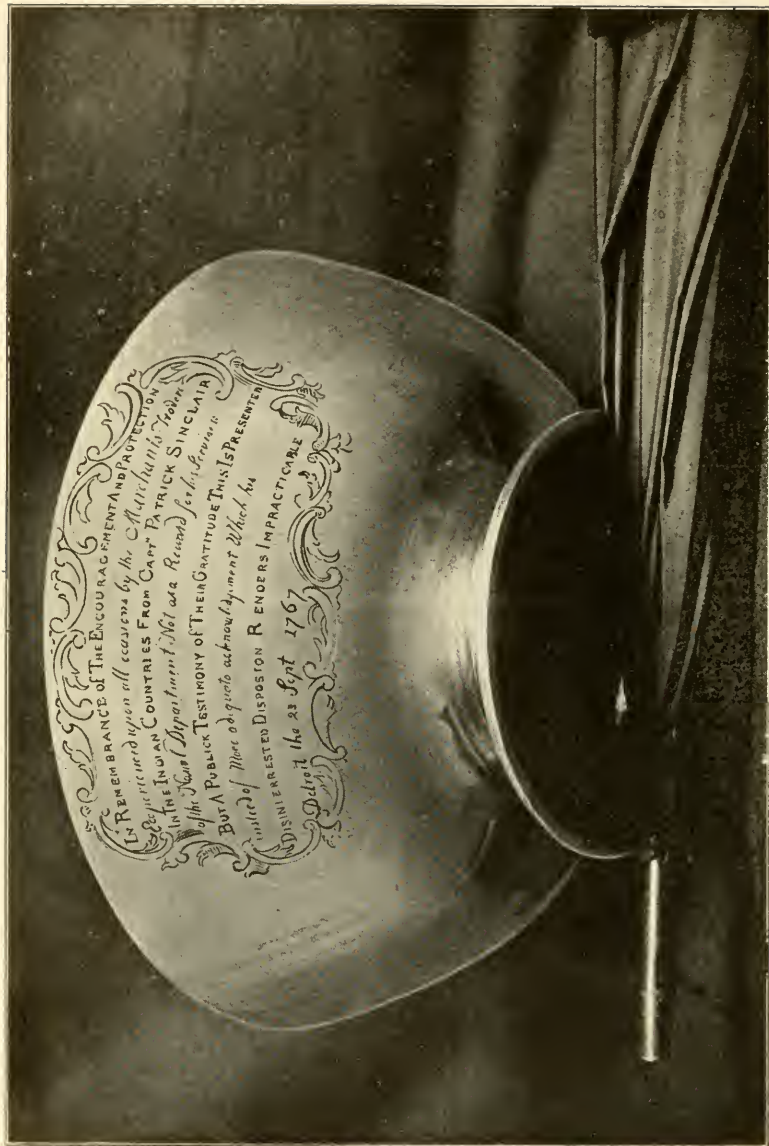 IN REMEMBRANCE OF THE ENCOURAGEMENT AND PROTECTION
Experienced upon all ocasions by the Marchants Traden
IN THE INDIAN COUNTRIES FROM CAPTN PATRICK SINCLAIR
of the Naval Department Not as a Reward for his Services
BUT A PUBLICK TESTIMONY OF THEIR GRATITUDE THIS IS PRESENTED
insted of More adiquate acknowlidgment Which his
DISINIERRESTED DISPOSTON RENDERS IMPRACTICABLE
Detroit the 23 Sept 1767